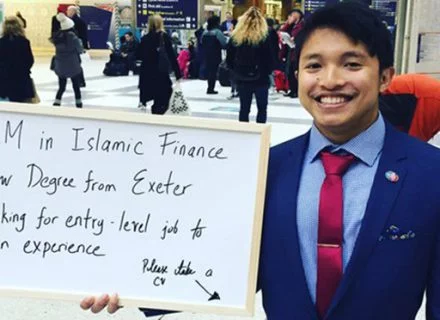 M in Islamic Finance
w Degree from Exeter
king for entry-level job to
n experience
Please take a
CV